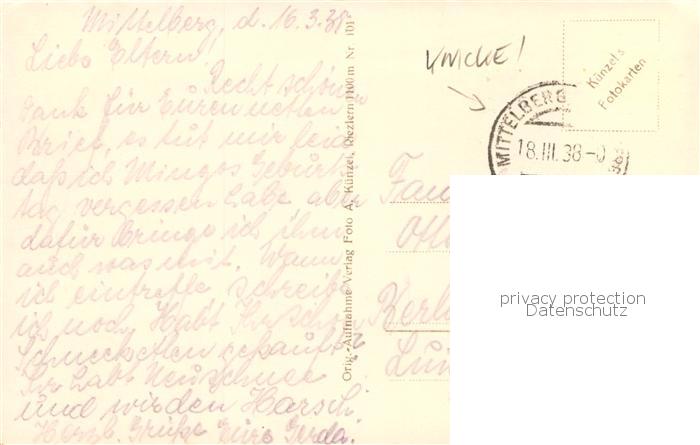 Mittelberg, d. 16.3.38
Liebe Eltern!
Recht schönen
Dank für Euren netten
Brief, es tut mir leid
daß ich Mingos Geburts
tag vergessen habe aber
dafür bringe ich ihm
auch was mit. Wann
ich eintreffe schreibe
ich noch. Habt Ihr schon
gekauft
Ihr habt Neuschnee
und wir den Harsch.
Herzl. Grüße Eure Gerda.
Orig.-Aufnahme Verlag Foto A. Künzel, Riezlern 1100 m Nr. 101
Künzel's
Fotokarten
MITTELBERG
18.III.38-
Fam
Otto
Berl
privacy protection
Datenschutz